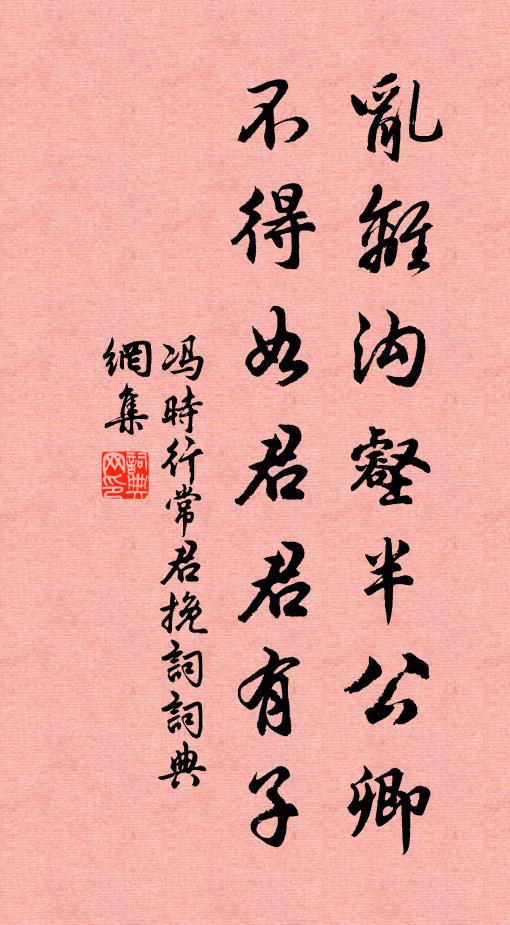 亂離沟壑半公卿
不得如君君有子
冯時行常君挽詞詞典
網集
詞典
网印